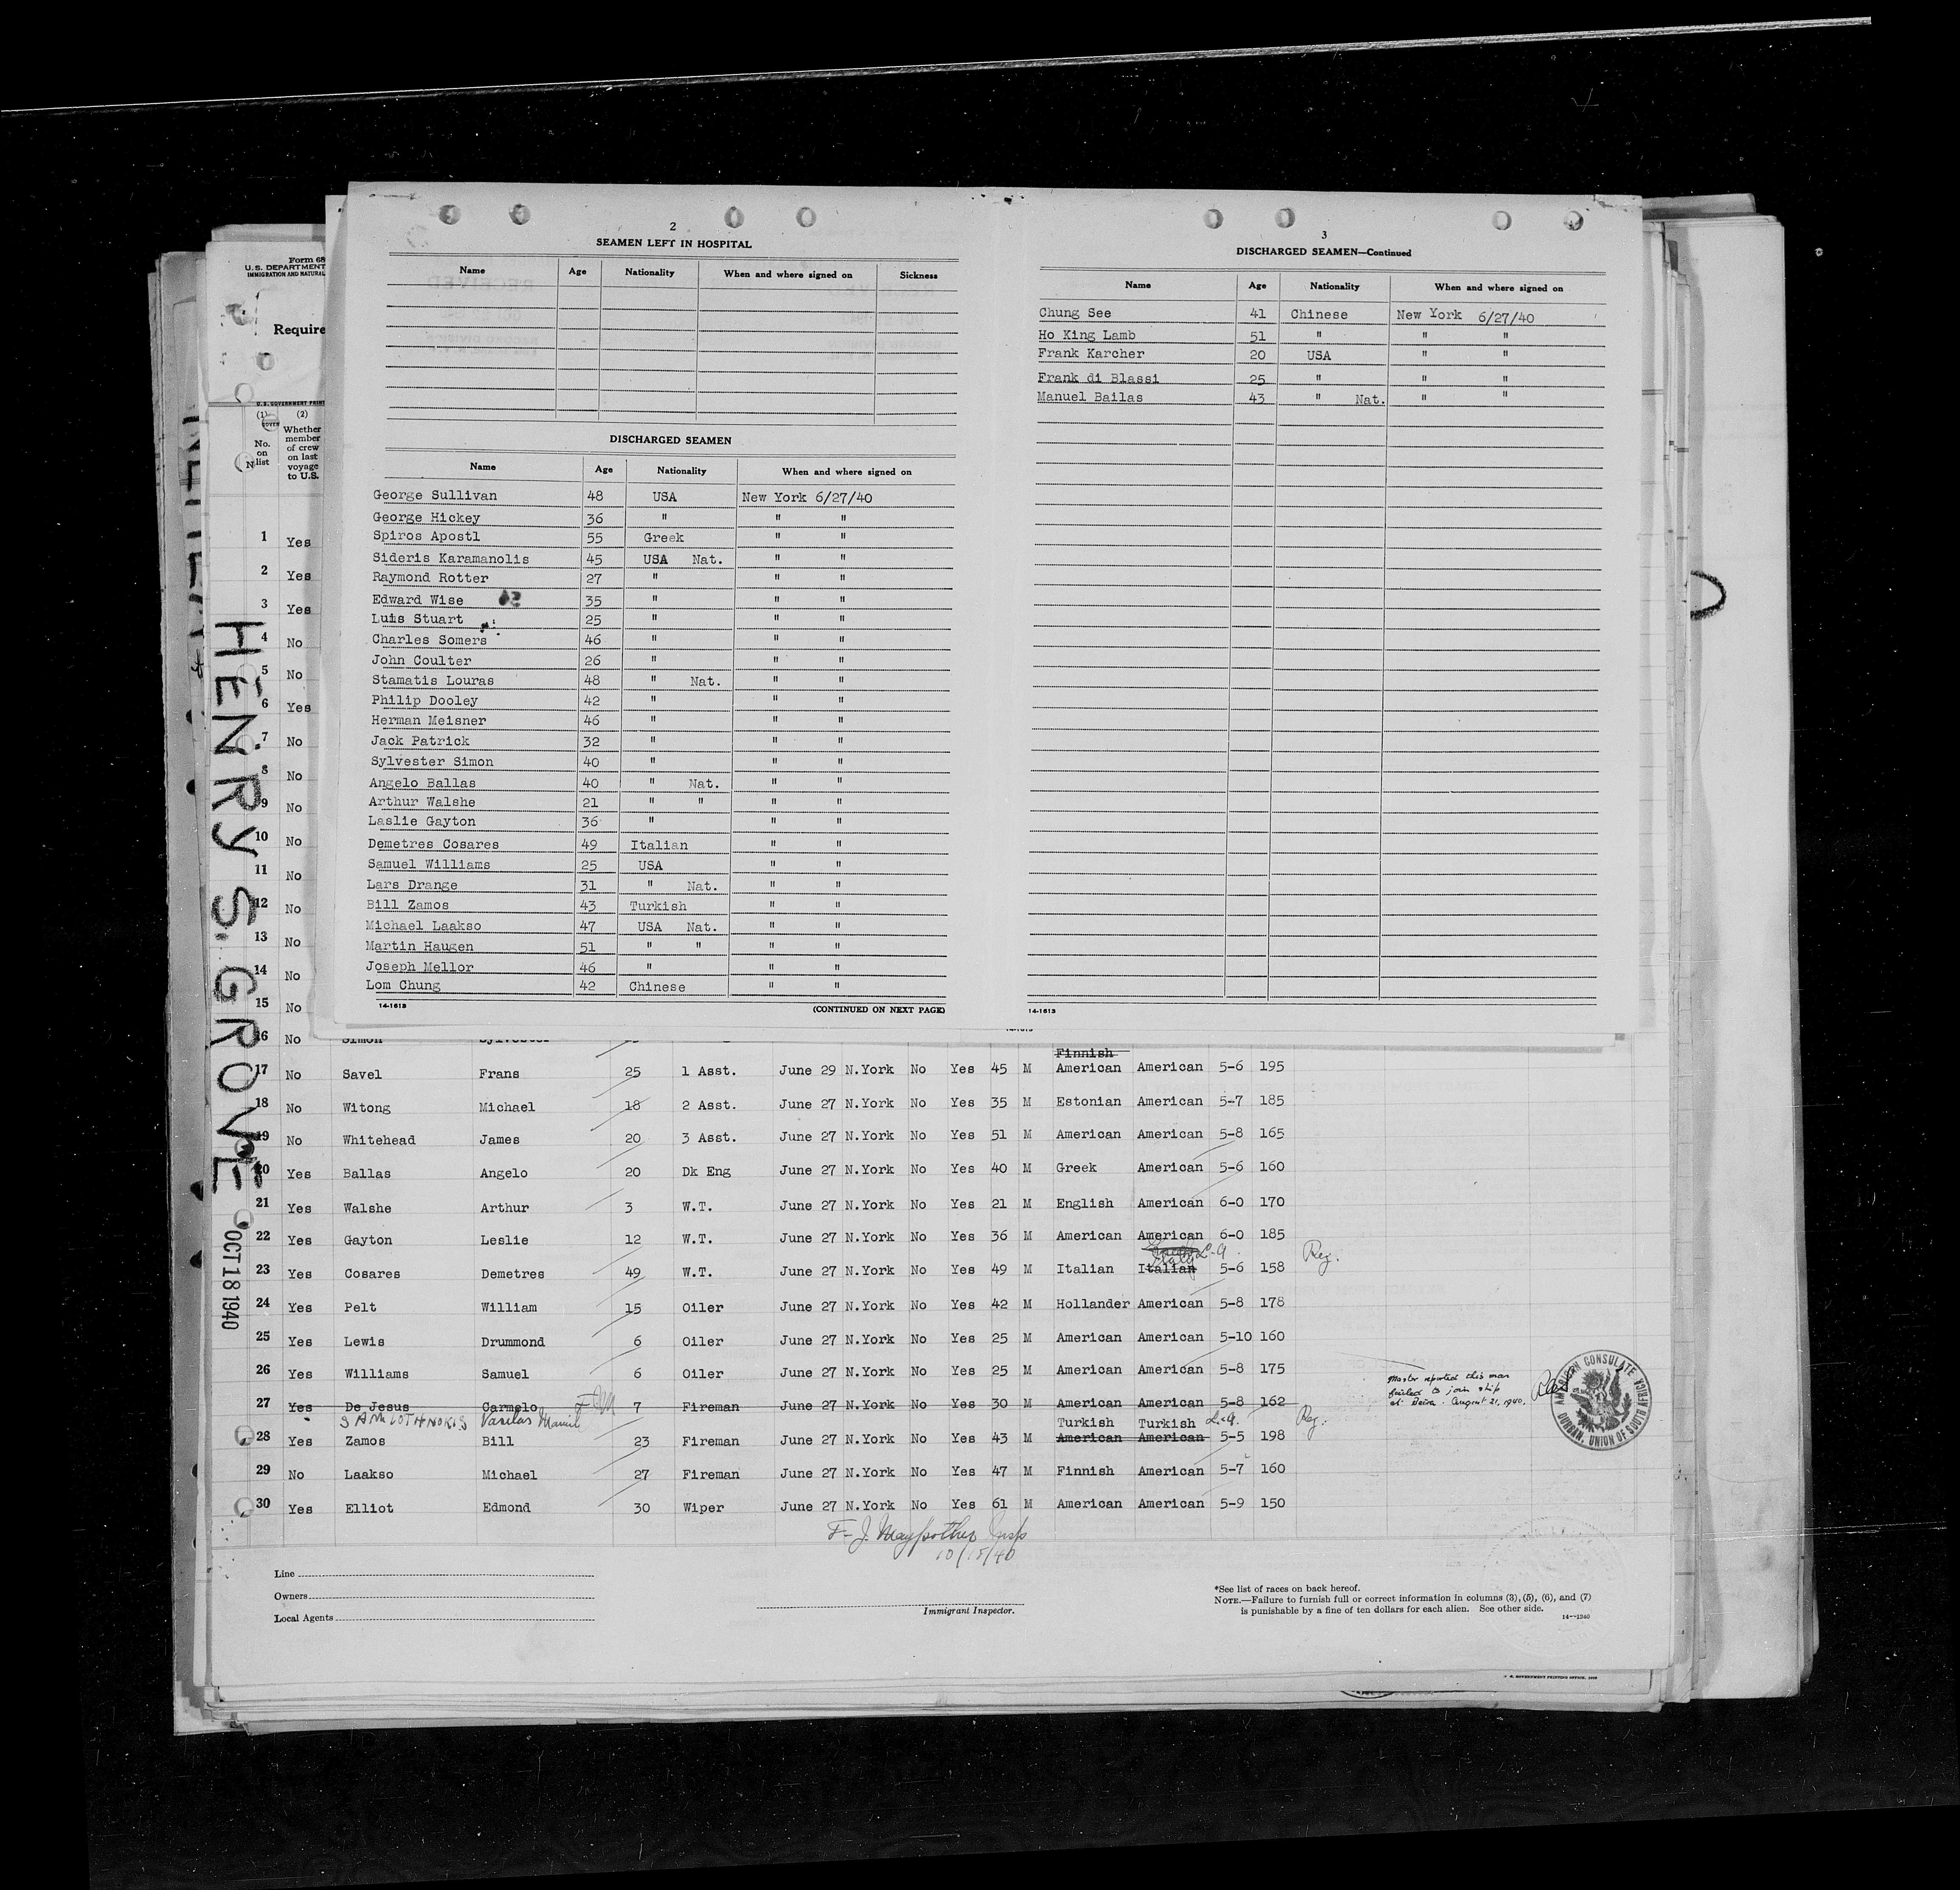 2
SEAMEN LEFT IN HOSPITAL
Name Age Nationality When and where signed on Sickness
DISCHARGED SEAMEN
Name Age Nationality When and where signed on
George Sullivan 48 USA New York 6/27/40
George Hickey 36 " " "
Spiros Apostl 55 Greek " "
Sideris Karamanolis 45 USA Nat. " "
Raymond Rotter 27 " " "
Edward Wise 35 " " "
Luis Stuart 25 " " "
Charles Somers 46 " " "
John Coulter 26 " " "
Stamatis Louras 48 " Nat. " "
Philip Dooley 42 " " "
Herman Meisner 46 " " "
Jack Patrick 32 " " "
Sylvester Simon 40 " " "
Angelo Ballas 40 " Nat. " "
Arthur Walshe 21 " " " "
Laslie Gayton 36 " " "
Demetres Cosares 49 Italian " "
Samuel Williams 25 USA " "
Lars Drange 31 " Nat. " "
Bill Zamos 43 Turkish " "
Michael Laakso 47 USA Nat. " "
Martin Haugen 51 " " " "
Joseph Mellor 46 " " "
Lom Chung 42 Chinese " "
14-1613 (CONTINUED ON NEXT PAGE)
3
DISCHARGED SEAMEN—Continued
Name Age Nationality When and where signed on
Chung See 41 Chinese New York 6/27/40
Ho King Lamb 51 " " "
Frank Karcher 20 USA " "
Frank di Blassi 25 " " "
Manuel Bailas 43 " Nat. " "
14-1613
Form 68
U.S. DEPARTMENT
IMMIGRATION AND NATURAL
Require
U.S. GOVERNMENT PRINT
(1) (2)
No. on list
Whether member of crew on last voyage to U.S.
1 Yes
2 Yes
3 Yes
4 No
5 No
6 Yes
7 No
8 No
9 No
10 No
11 No
12 No
13 No
14 No
15 No
16 No Simon Sylvester
Finnish
17 No Savel Frans 25 1 Asst. June 29 N.York No Yes 45 M American American 5-6 195
18 No Witong Michael 18 2 Asst. June 27 N.York No Yes 35 M Estonian American 5-7 185
19 No Whitehead James 20 3 Asst. June 27 N.York No Yes 51 M American American 5-8 165
20 Yes Ballas Angelo 20 Dk Eng June 27 N.York No Yes 40 M Greek American 5-6 160
21 Yes Walshe Arthur 3 W.T. June 27 N.York No Yes 21 M English American 6-0 170
22 Yes Gayton Leslie 12 W.T. June 27 N.York No Yes 36 M American American 6-0 185
Italy Reg.
23 Yes Cosares Demetres 49 W.T. June 27 N.York No Yes 49 M Italian Italian 5-6 158
24 Yes Pelt William 15 Oiler June 27 N.York No Yes 42 M Hollander American 5-8 178
25 Yes Lewis Drummond 6 Oiler June 27 N.York No Yes 25 M American American 5-10 160
26 Yes Williams Samuel 6 Oiler June 27 N.York No Yes 25 M American American 5-8 175
27 Yes De Jesus Carmelo 7 Fireman June 27 N.York No Yes 30 M American American 5-8 162
Master reported this man
failed to join ship
at Beira. August 21, 1940.
Turkish Turkish Reg.
28 Yes Zamos Bill 23 Fireman June 27 N.York No Yes 43 M American American 5-5 198
29 No Laakso Michael 27 Fireman June 27 N.York No Yes 47 M Finnish American 5-7 160
30 Yes Elliot Edmond 30 Wiper June 27 N.York No Yes 61 M American American 5-9 150
AMERICAN CONSULATE
DURBAN, UNION OF SOUTH AFRICA
10/18/40
Line
Owners
Local Agents
Immigrant Inspector.
*See list of races on back hereof.
NOTE.—Failure to furnish full or correct information in columns (3), (5), (6), and (7)
is punishable by a fine of ten dollars for each alien. See other side.
14—1940
HENRY S. GROVE
OCT 18 1940